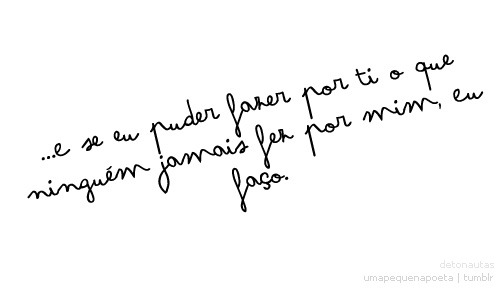 ...e se eu puder fazer por ti o que
ninguém jamais fez por mim, eu
faço.
detonautas
umapequenapoeta | tumblr